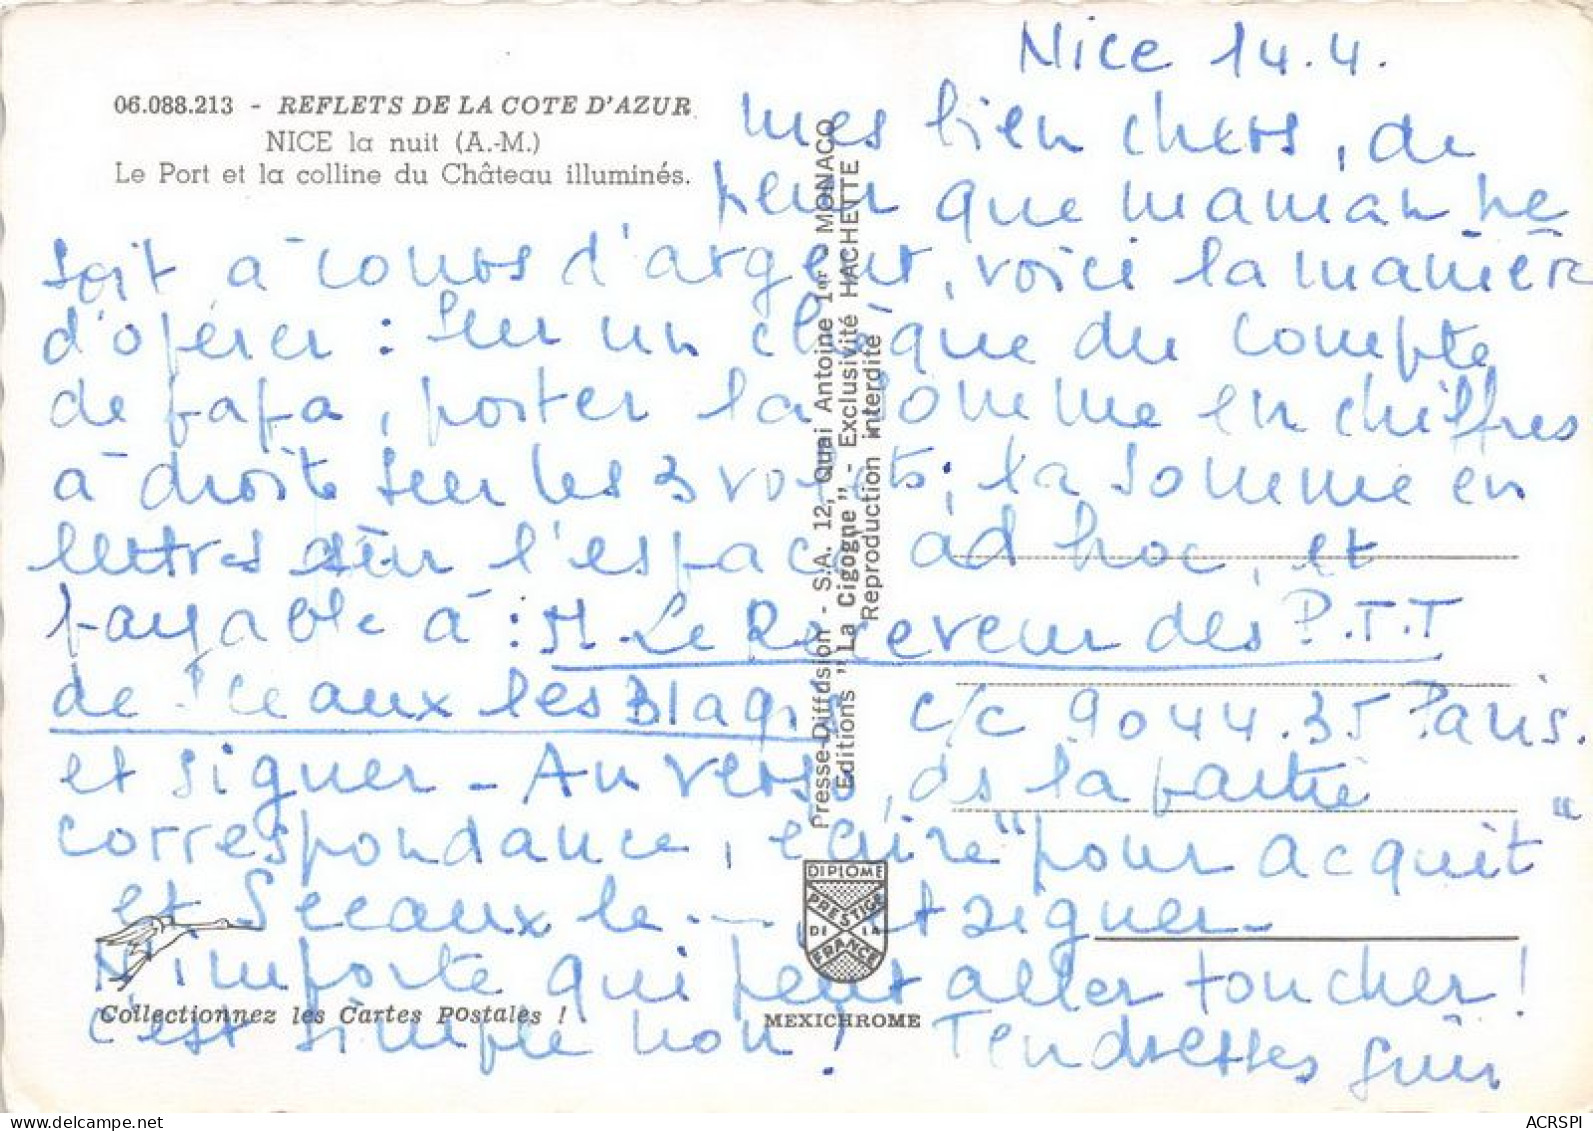 Nice 14.4.
06.088.213 - REFLETS DE LA COTE D'AZUR
NICE la nuit (A.-M.)
Le Port et la colline du Château illuminés.
mes bien chers, de
peur que maman ne
soit à cours d'argent, voici la manière
d'opérer : Sur un chèque du compte
de papa, porter la somme en chiffres
à droite sur les 3 volets ; la somme en
lettres sur l'espace ad hoc, et
payable à : M. Le Receveur des P.T.T
de Sceaux les Blagis c/c 9044.35 Paris.
et signer - Au verso, ds la partie
correspondance, écrire "pour acquit"
et Sceaux le . - . et signer -
N'importe qui peut aller toucher !
C'est simple non ! Tendresses
Presse-Diffusion - S.A. 12, Quai Antoine 1er MONACO
Editions "La Cigogne" - Exclusivité HACHETTE
Reproduction interdite
DIPLOME
PRESTIGE
DE LA
FRANCE
Collectionnez les Cartes Postales !
MEXICHROME
ACRSPI